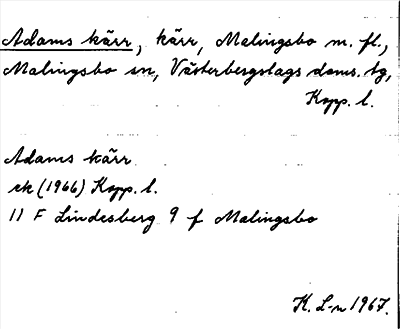 Adams kärr, kärr, Malingsbo m. fl.,
Malingsbo sn, Västerbergslags doms. tg,
Kopp. l.
Adams kärr
ek (1966) Kopp. l.
11 F Lindesberg 9 f Malingsbo
K. L-n 1967.